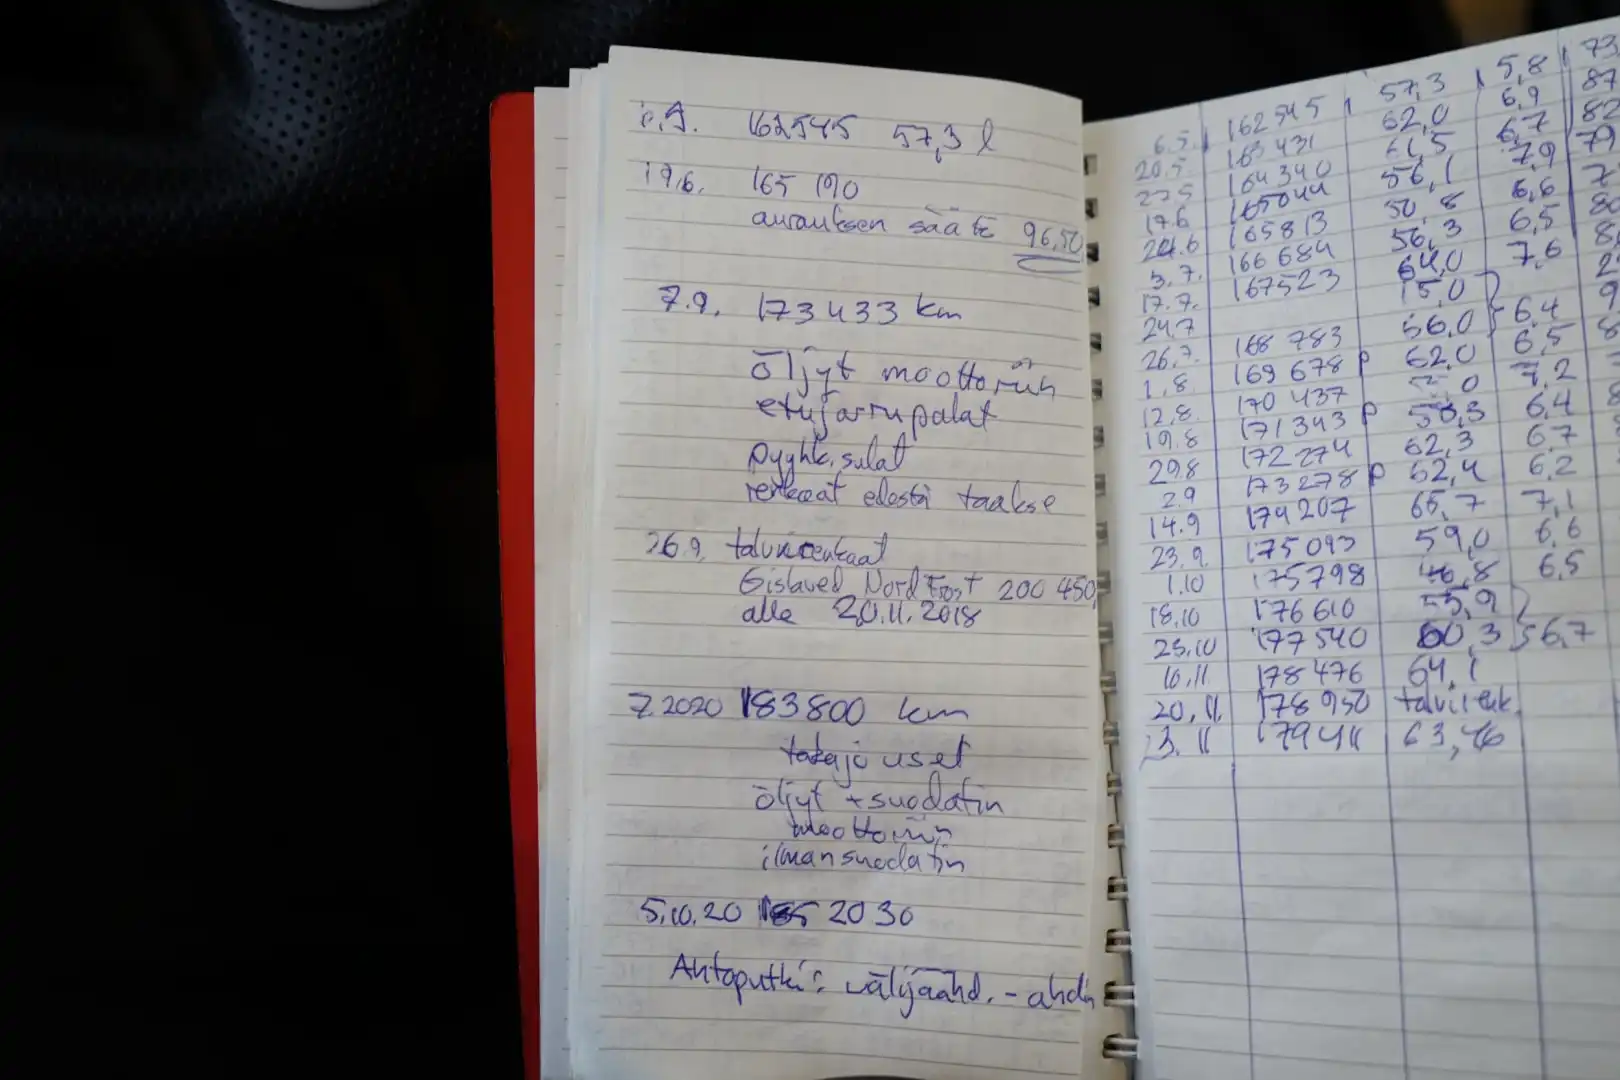 162545 57,3 l
19.6. 165 190
aurauksen säätö 96,50
7.9. 173433 km
öljyt moottoriin
etujarrupalat
pyyhk. sulat
renkaat edestä taakse
26.9. talvirenkaat
Gislaved Nord Frost 200 450,
alle 20.11.2018
7.2020 183800 km
takajouset
öljyt + suodatin
moottoriin
ilmansuodatin
5.10.20 185 2030
Ahtoputki: välijäähd. - ahdin
6.5. 162545 57,3 5,8 73
20.5. 163431 62,0 6,9 87
164340 61,5 6,7 82
17.6 165044 56,1 7,9 79
24.6 165813 50,8 6,6 7
3.7. 166684 56,3 6,5 86
17.7. 167523 64,0 7,6 8
24.7 15,0
26.7. 168 783 56,0 6,4 9
1.8. 169 678 P 62,0 6,5 8
12.8. 170 437 7,2
19.8 171343 P 58,3 6,4 8
29.8 172274 62,3 6,7
2.9 173278 P 62,4 6,2
14.9 174207 65,7 7,1
23.9. 175093 59,0 6,6
1.10 175798 46,8 6,5
18.10 176610 55,9
25.10 177540 60,3 6,7
10.11. 178476 64,1
20.11. 178950
3.11 179411 63,46